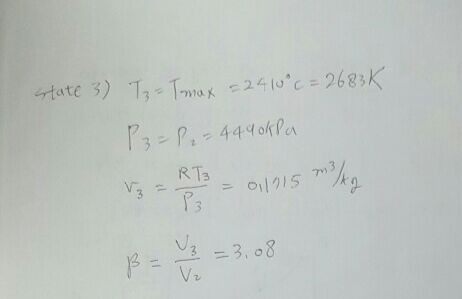 state 3) T₃ = Tmax = 2410°C = 2683K
P₃ = P₂ = 4490kPa
V₃ = RT₃/P₃ = 0,1715 m³/kg
β = V₃/V₂ = 3.08